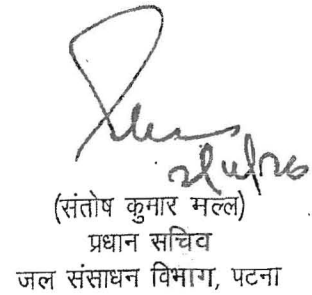 (संतोष कुमार मल्ल)
प्रधान सचिव
जल संसाधन विभाग, पटना